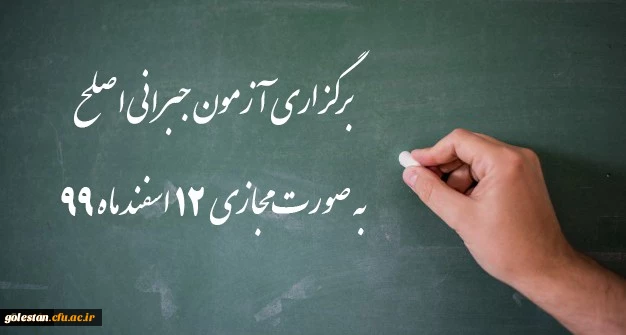 برگزاری آزمون جبرانی اصلح
به صورت مجازی ۱۲ اسفندماه ۹۹
golestan.cfu.ac.ir